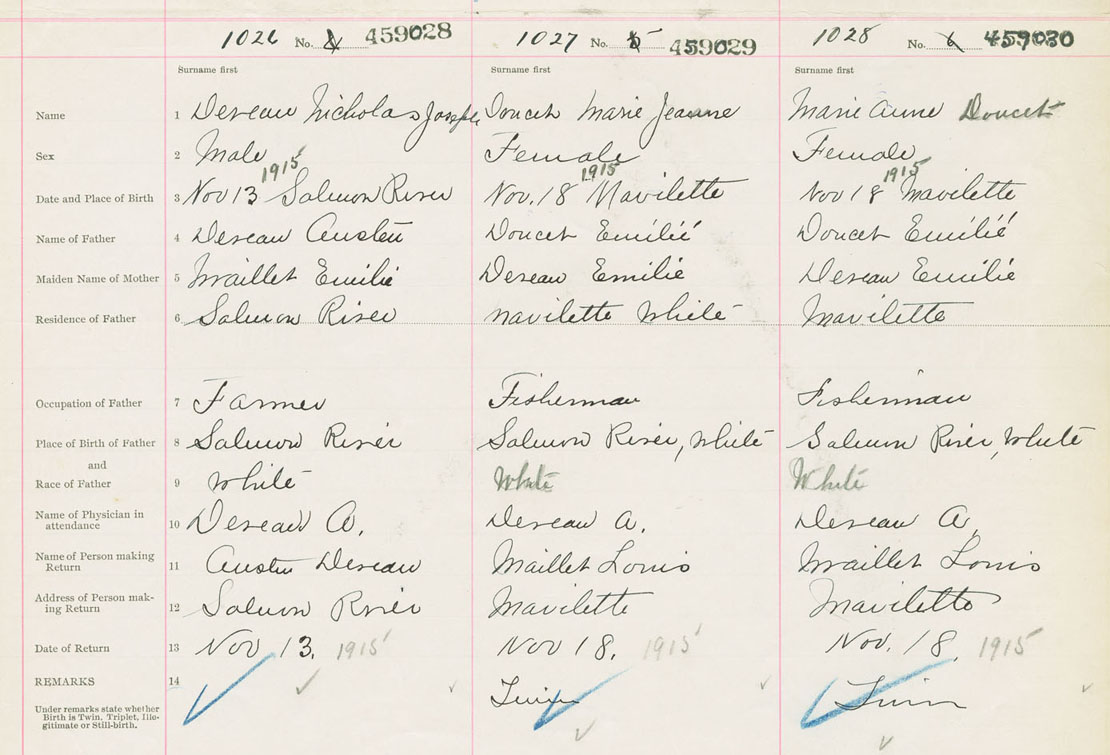 1026 No. 4 459028 1027 No. 5 459029 1028 No. 6 459030
Surname first Surname first Surname first
Name 1 Deveau Nicholas Joseph Doucet Marie Jeanne Marie Anne Doucet
Sex 2 Male Female Female
1915 1915 1915
Date and Place of Birth 3 Nov 13 Salmon River Nov. 18 Mavilette Nov 18 Mavilette
Name of Father 4 Deveau Austen Doucet Emilié Doucet Emilié
Maiden Name of Mother 5 Maillet Emilie Deveau Emilie Deveau Emilié
Residence of Father 6 Salmon River Mavilette White Mavilette
Occupation of Father 7 Farmer Fisherman Fisherman
Place of Birth of Father 8 Salmon River Salmon River, White Salmon River, White
and
Race of Father 9 White White White
Name of Physician in
attendance 10 Deveau A. Deveau A. Deveau A.
Name of Person making
Return 11 Austen Deveau Maillet Louis Maillet Louis
Address of Person mak-
ing Return 12 Salmon River Mavilette Mavilette
Date of Return 13 Nov 13. 1915 Nov 18. 1915 Nov. 18. 1915
REMARKS 14 Twin Twin
Under remarks state whether
Birth is Twin, Triplet, Ille-
gitimate or Still-birth.